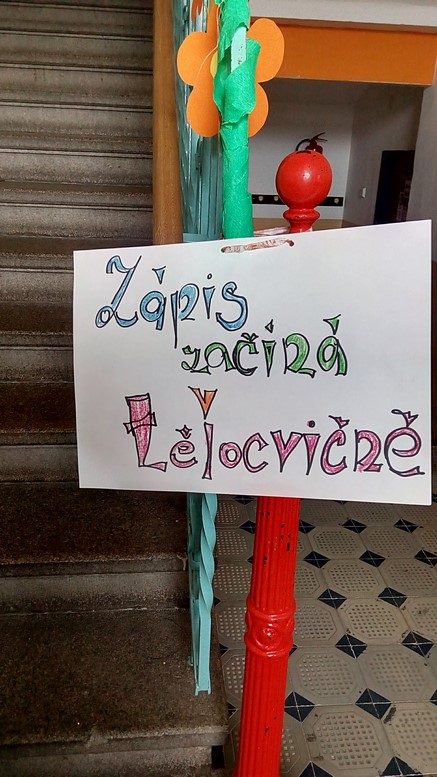 Zápis
začíná
v
tělocvičně